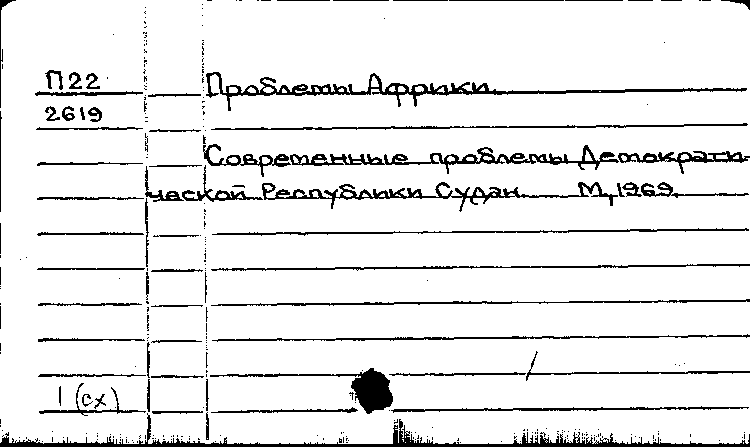 П22
Проблемы Африки.
2619
Современные проблемы Демократи-
ческой Республики Судан. М,1969.
1 (сх)